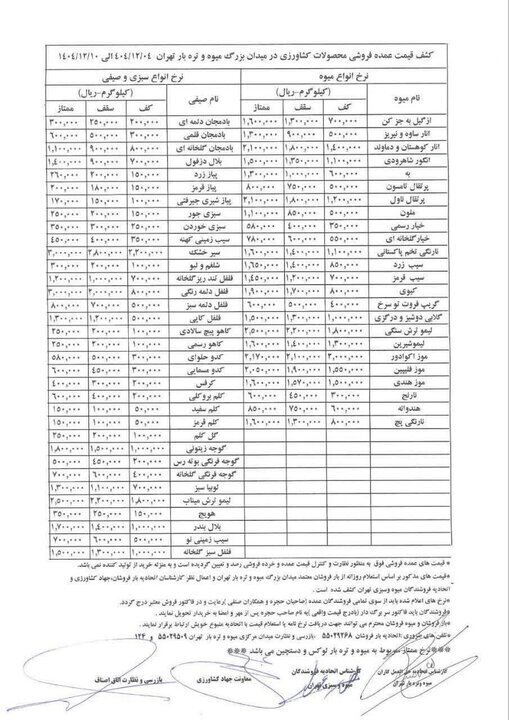 کشف قیمت عمده فروشی محصولات کشاورزی در میدان بزرگ میوه و تره بار تهران ۱۴۰۴/۱۲/۰۴ الی ۱۴۰۴/۱۲/۱۰
نرخ انواع میوه
نام میوه (کیلوگرم-ریال)
کف سقف ممتاز
ازگیل به جز کن ۷۰۰,۰۰۰ ۱,۳۰۰,۰۰۰ ۱,۶۰۰,۰۰۰
انار ساوه و نیریز ۵۰۰,۰۰۰ ۹۰۰,۰۰۰ ۱,۳۰۰,۰۰۰
انار کوهستان و دماوند ۱,۴۰۰,۰۰۰ ۱,۸۰۰,۰۰۰ ۲,۱۰۰,۰۰۰
انگور شاهرودی ۱,۱۰۰,۰۰۰ ۱,۳۵۰,۰۰۰ ۱,۵۰۰,۰۰۰
به ۶۰۰,۰۰۰ ۱,۰۰۰,۰۰۰ ۱,۳۰۰,۰۰۰
پرتقال تامسون ۵۰۰,۰۰۰ ۷۵۰,۰۰۰ ۸۰۰,۰۰۰
پرتقال ناول ۱,۲۰۰,۰۰۰ ۱,۸۰۰,۰۰۰ ۲,۱۰۰,۰۰۰
ملون ۵۰۰,۰۰۰ ۸۵۰,۰۰۰ ۱,۱۰۰,۰۰۰
خیار رسمی ۳۵۰,۰۰۰ ۴۰۰,۰۰۰ ۵۸۰,۰۰۰
خیار گلخانه ای ۵۵۰,۰۰۰ ۶۰۰,۰۰۰ ۷۸۰,۰۰۰
نارنگی تخم پاکستانی ۱,۱۰۰,۰۰۰ ۱,۴۰۰,۰۰۰ ۱,۶۰۰,۰۰۰
سیب زرد ۸۵۰,۰۰۰ ۱,۴۰۰,۰۰۰ ۱,۶۵۰,۰۰۰
سیب قرمز ۷۰۰,۰۰۰ ۱,۴۵۰,۰۰۰ ۱,۶۰۰,۰۰۰
کیوی ۸۵۰,۰۰۰ ۱,۷۰۰,۰۰۰ ۱,۹۰۰,۰۰۰
گریپ فروت تو سرخ ۴۰۰,۰۰۰ ۵۰۰,۰۰۰ ۶۰۰,۰۰۰
گلابی دوشیز و درگزی ۱,۰۰۰,۰۰۰ ۱,۳۰۰,۰۰۰ ۱,۵۰۰,۰۰۰
لیمو ترش سنگی ۱,۸۰۰,۰۰۰ ۲,۲۰۰,۰۰۰ ۲,۵۰۰,۰۰۰
لیموشیرین ۱,۳۰۰,۰۰۰ ۱,۴۰۰,۰۰۰ ۱,۶۰۰,۰۰۰
موز اکوادور ۲,۰۰۰,۰۰۰ ۲,۱۰۰,۰۰۰ ۲,۱۷۰,۰۰۰
موز فلیپین ۱,۵۵۰,۰۰۰ ۱,۹۰۰,۰۰۰ ۲,۰۵۰,۰۰۰
موز هندی ۱,۵۰۰,۰۰۰ ۱,۵۷۰,۰۰۰ ۱,۶۰۰,۰۰۰
نارنج ۳۰۰,۰۰۰ ۴۵۰,۰۰۰ ۶۰۰,۰۰۰
هندوانه ۶۰۰,۰۰۰ ۷۵۰,۰۰۰ ۸۵۰,۰۰۰
نارنگی پیج ۸۰۰,۰۰۰ ۱,۳۰۰,۰۰۰ ۱,۶۰۰,۰۰۰
نرخ انواع سبزی و صیفی
نام صیفی (کیلوگرم-ریال)
کف سقف ممتاز
بادمجان دلمه ای ۲۰۰,۰۰۰ ۲۵۰,۰۰۰ ۳۰۰,۰۰۰
بادمجان قلمی ۳۰۰,۰۰۰ ۵۰۰,۰۰۰ ۶۰۰,۰۰۰
بادمجان گلخانه ای ۴۰۰,۰۰۰ ۸۰۰,۰۰۰ ۹۰۰,۰۰۰
بلال دزفول ۷۰۰,۰۰۰ ۹۰۰,۰۰۰ ۱,۴۰۰,۰۰۰
پیاز زرد ۱۵۰,۰۰۰ ۲۰۰,۰۰۰ ۲۶۰,۰۰۰
پیاز قرمز ۱۵۰,۰۰۰ ۱۸۰,۰۰۰ ۲۰۰,۰۰۰
پیاز شیری جیرفتی ۱۰۰,۰۰۰ ۱۵۰,۰۰۰ ۱۷۰,۰۰۰
سبزی جور ۱۵۰,۰۰۰ ۲۰۰,۰۰۰ ۲۵۰,۰۰۰
سبزی خوردن ۲۵۰,۰۰۰ ۳۰۰,۰۰۰ ۳۵۰,۰۰۰
سیب زمینی کهنه ۳۵۰,۰۰۰ ۴۰۰,۰۰۰ ۴۵۰,۰۰۰
سیر خشک ۲,۲۰۰,۰۰۰ ۲,۸۰۰,۰۰۰ ۳,۰۰۰,۰۰۰
شلغم و لبو ۱۰۰,۰۰۰ ۲۰۰,۰۰۰ ۳۰۰,۰۰۰
فلفل تند ریز گلخانه ۷۰۰,۰۰۰ ۱,۰۰۰,۰۰۰ ۱,۲۰۰,۰۰۰
فلفل دلمه رنگی ۸۰۰,۰۰۰ ۲,۰۰۰,۰۰۰ ۳,۰۰۰,۰۰۰
فلفل دلمه سبز ۵۰۰,۰۰۰ ۷۰۰,۰۰۰ ۸۰۰,۰۰۰
فلفل کاپی ۵۰۰,۰۰۰ ۱,۰۰۰,۰۰۰ ۱,۲۰۰,۰۰۰
کاهو پیچ سالادی ۱۰۰,۰۰۰ ۲۰۰,۰۰۰ ۲۵۰,۰۰۰
کاهو رسمی ۱۰۰,۰۰۰ ۲۰۰,۰۰۰ ۲۵۰,۰۰۰
کدو حلوای ۳۰۰,۰۰۰ ۵۰۰,۰۰۰ ۵۸۰,۰۰۰
کدو مسمایی ۲۰۰,۰۰۰ ۳۰۰,۰۰۰ ۶۰۰,۰۰۰
کرفس ۲۰۰,۰۰۰ ۳۰۰,۰۰۰ ۴۰۰,۰۰۰
کلم بروکلی ۲۰۰,۰۰۰ ۴۰۰,۰۰۰ ۶۰۰,۰۰۰
کلم سفید ۵۰,۰۰۰ ۱۰۰,۰۰۰ ۱۵۰,۰۰۰
کلم قرمز ۵۰,۰۰۰ ۱۰۰,۰۰۰ ۱۵۰,۰۰۰
گل کلم ۱۰۰,۰۰۰ ۲۰۰,۰۰۰ ۲۵۰,۰۰۰
گوجه زیتونی ۱,۰۰۰,۰۰۰ ۱,۵۰۰,۰۰۰ ۱,۸۰۰,۰۰۰
گوجه فرنگی بوته رس ۲۰۰,۰۰۰ ۴۵۰,۰۰۰ ۵۰۰,۰۰۰
گوجه فرنگی گلخانه ۴۰۰,۰۰۰ ۶۰۰,۰۰۰ ۷۰۰,۰۰۰
لوبیا سبز ۷۰۰,۰۰۰ ۱,۱۰۰,۰۰۰ ۱,۳۰۰,۰۰۰
لیمو ترش میناب ۱,۸۰۰,۰۰۰ ۲,۲۰۰,۰۰۰ ۲,۵۰۰,۰۰۰
هویج ۱۵۰,۰۰۰ ۲۵۰,۰۰۰ ۳۵۰,۰۰۰
بلال بندر ۱,۰۰۰,۰۰۰ ۱,۴۰۰,۰۰۰ ۱,۷۰۰,۰۰۰
سیب زمینی نو ۵۰۰,۰۰۰ ۶۰۰,۰۰۰ ۷۰۰,۰۰۰
فلفل سبز گلخانه ۱,۰۰۰,۰۰۰ ۱,۳۰۰,۰۰۰ ۱,۵۰۰,۰۰۰
* قیمت های عمده فروشی فوق به منظور نظارت و کنترل قیمت عمده و خرده فروشی رصد و تعیین گردیده است و به منزله خرید از تولید کننده نمی باشد.
*قیمت های مذکور بر اساس استعلام روزانه از بار فروشان معتمد میدان بزرگ میوه و تره بار تهران و اعمال نظر کارشناسان اتحادیه بار فروشان، جهاد کشاورزی و
اتحادیه فروشندگان میوه وسبزی تهران کشف شده است.
*نرخ های اعلام شده باید از سوی تمامی فروشندگان عمده (صاحبان حجره و همکاران صنفی) رعایت و در فاکتور فروش معتبر درج گردد.
*فروشندگان باید فاکتور سر برگ دار (با درج قیمت واقعی) به نام صاحب حجره پس از مهر و امضا به خریدار تحویل نمایند.
*بار فروشان و میوه فروشان محترم می توانند جهت دریافت نرخ نامه یا استعلام قیمت با اتحادیه متبوع خویش ارتباط برقرار نمایند.
*تلفن های ضروری: اتحادیه بار فروشان ۵۵۰۴۹۲۶۸ -بازرسی و نظارت میدان مرکزی میوه و تره بار تهران ۵۵۰۲۹۵۰۹ و ۱۲۴
***نرخ ممتاز مربوط به میوه و تره بار لوکس و دستچین می باشد***
کارشناس اتحادیه حق العمل کاران
میوه و تره بار تهران
کارشناس اتحادیه فروشندگان
میوه و سبزی تهران
معاونت جهاد کشاورزی
بازرسی و نظارت اتاق اصناف